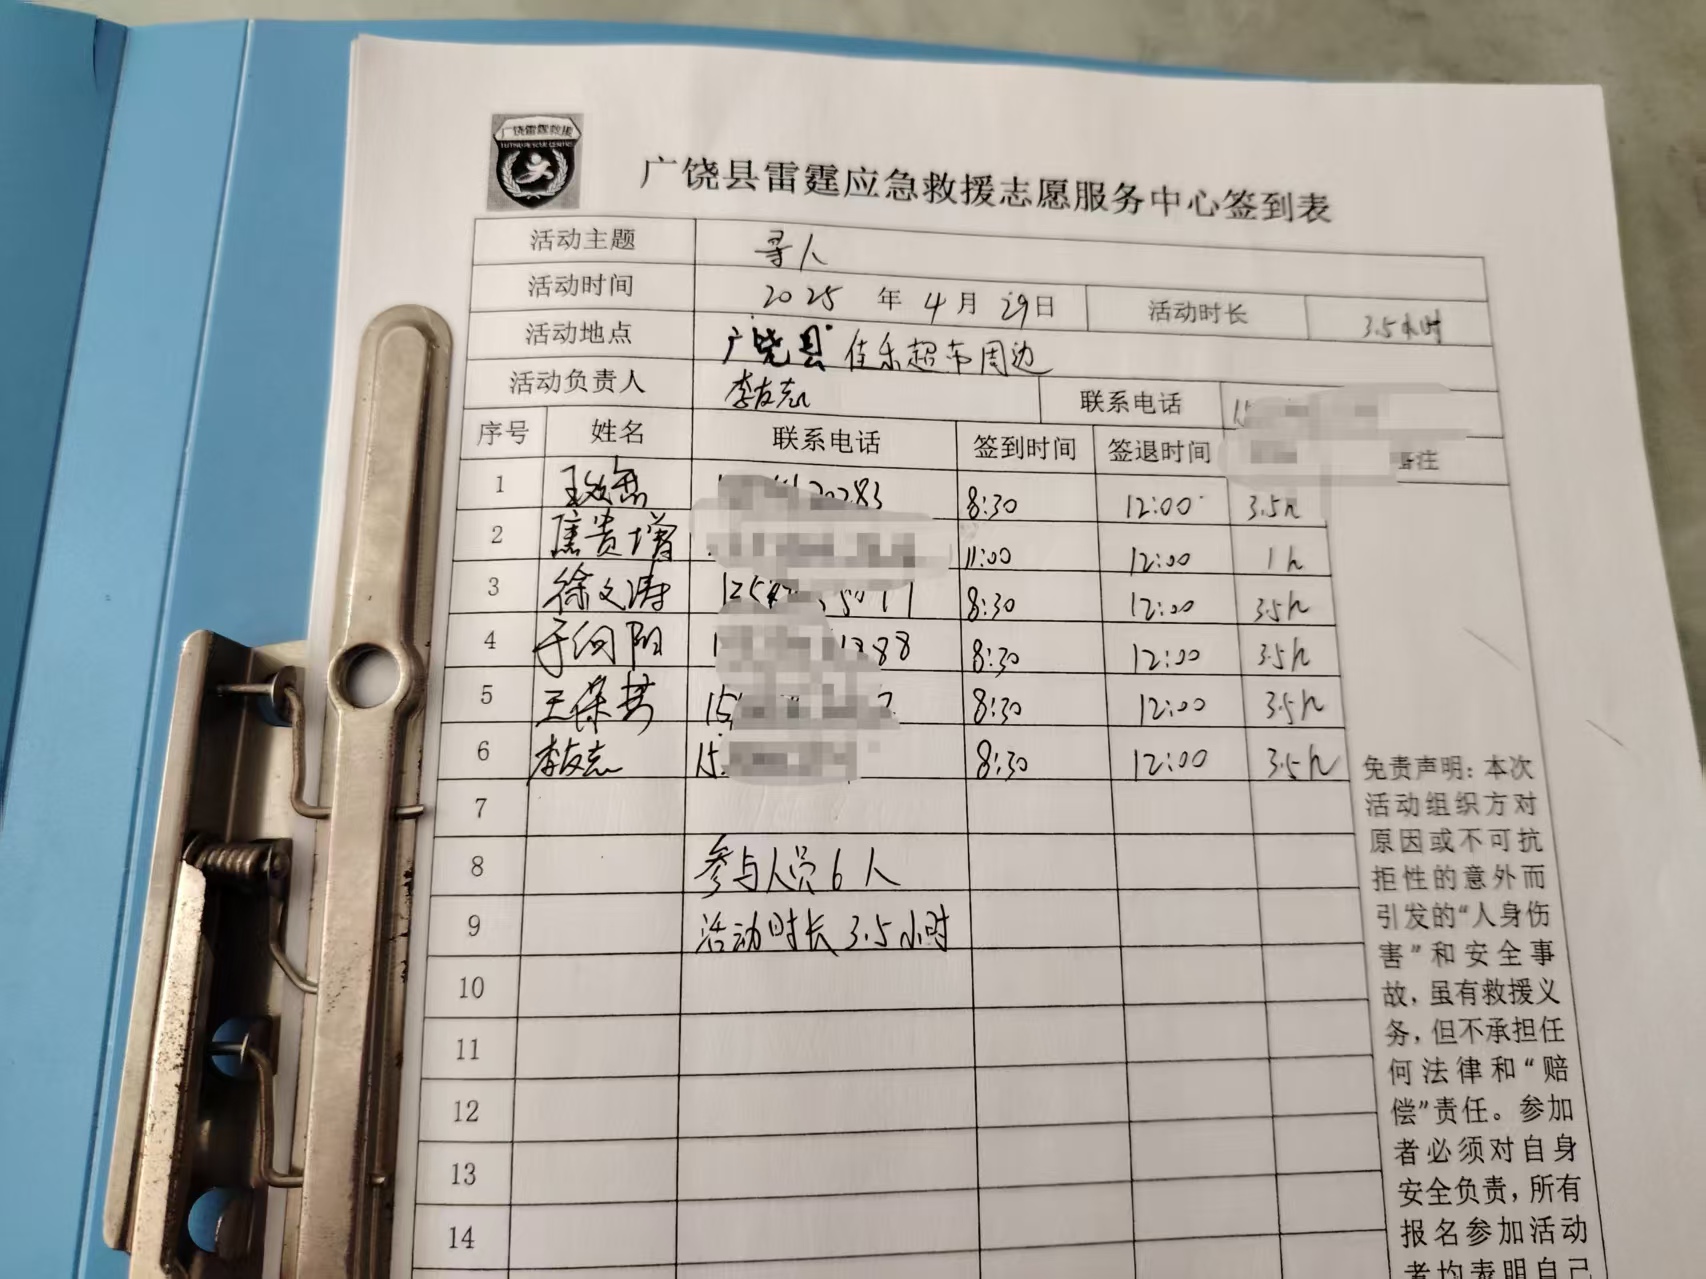 广饶雷霆救援
广饶县雷霆应急救援志愿服务中心签到表
活动主题 寻人
活动时间 2025 年 4 月 29 日 活动时长 3.5小时
活动地点 广饶县 佳乐超市周边
活动负责人 李友志 联系电话
序号 姓名 联系电话 签到时间 签退时间 备注
1 8:30 12:00 3.5h
2 贵增 11:00 12:00 1h
3 徐文涛 8:30 12:00 3.5h
4 于向阳 1388 8:30 12:00 3.5h
5 王保 15 8:30 12:00 3.5h
6 李友志 15 8:30 12:00 3.5h
7
8 参与人员6人
9 活动时长3.5小时
10
11
12
13
14
免责声明：本次
活动组织方对
原因或不可抗
拒性的意外而
引发的“人身伤
害”和安全事
故，虽有救援义
务，但不承担任
何法律和“赔
偿”责任。参加
者必须对自身
安全负责，所有
报名参加活动
者均表明自己